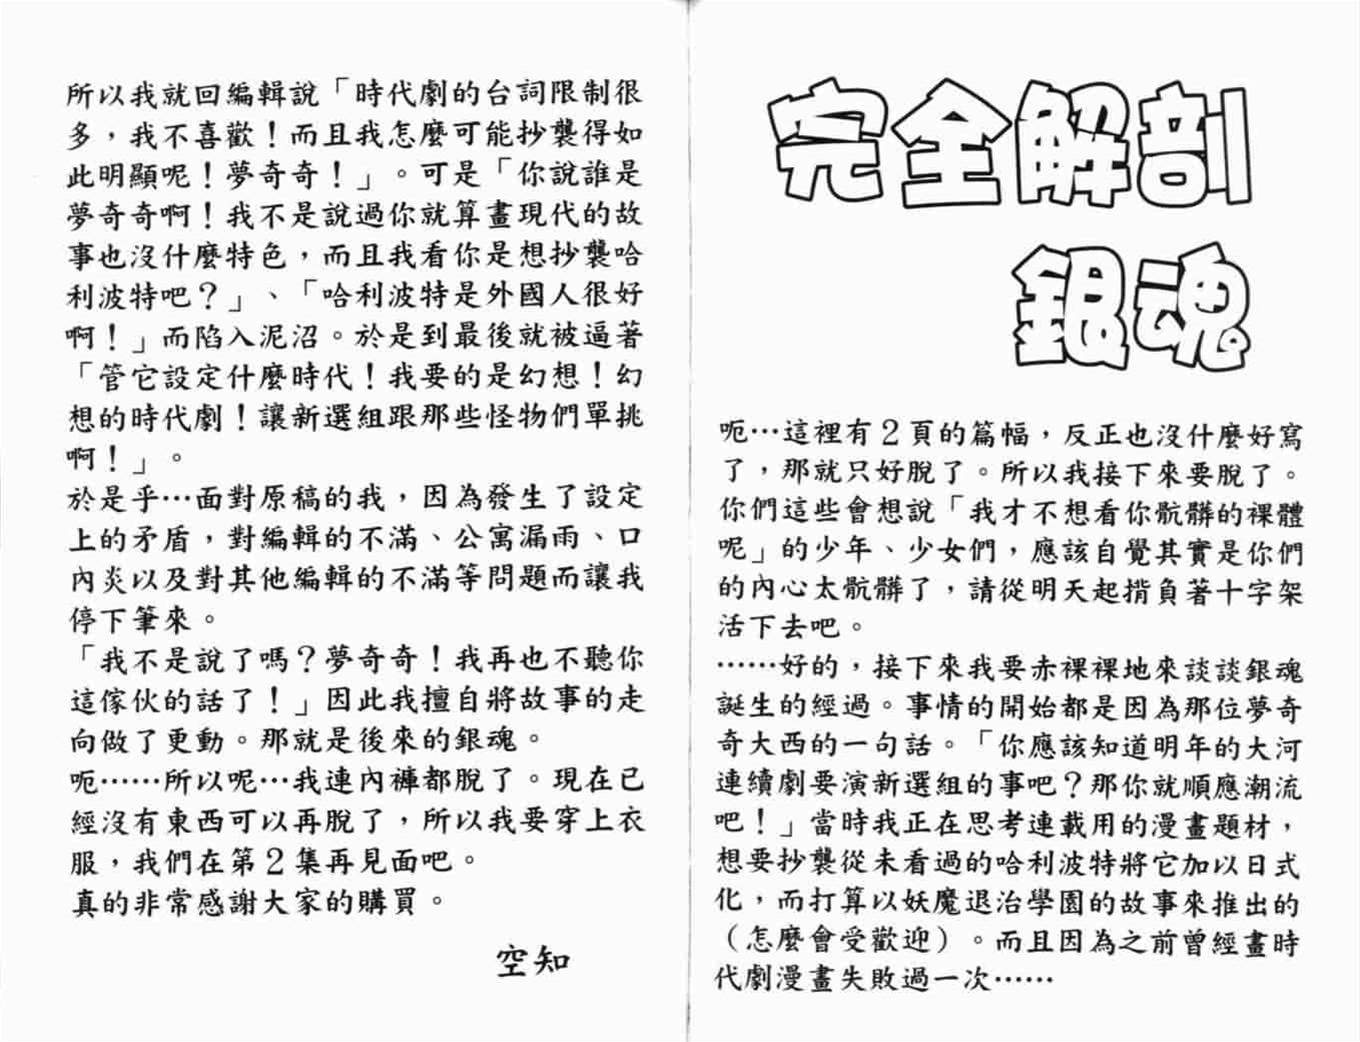 完全解剖
銀魂
呃…這裡有２頁的篇幅，反正也沒什麼好寫
了，那就只好脫了。所以我接下來要脫了。
你們這些會想說「我才不想看你骯髒的裸體
呢」的少年、少女們，應該自覺其實是你們
的內心太骯髒了，請從明天起揹負著十字架
活下去吧。
……好的，接下來我要赤裸裸地來談談銀魂
誕生的經過。事情的開始都是因為那位夢奇
奇大西的一句話。「你應該知道明年的大河
連續劇要演新選組的事吧？那你就順應潮流
吧！」當時我正在思考連載用的漫畫題材，
想要抄襲從未看過的哈利波特將它加以日式
化，而打算以妖魔退治學園的故事來推出的
（怎麼會受歡迎）。而且因為之前曾經畫時
代劇漫畫失敗過一次……
所以我就回編輯說「時代劇的台詞限制很
多，我不喜歡！而且我怎麼可能抄襲得如
此明顯呢！夢奇奇！」。可是「你說誰是
夢奇奇啊！我不是說過你就算畫現代的故
事也沒什麼特色，而且我看你是想抄襲哈
利波特吧？」、「哈利波特是外國人很好
啊！」而陷入泥沼。於是到最後就被逼著
「管它設定什麼時代！我要的是幻想！幻
想的時代劇！讓新選組跟那些怪物們單挑
啊！」。
於是乎…面對原稿的我，因為發生了設定
上的矛盾，對編輯的不滿、公寓漏雨、口
內炎以及對其他編輯的不滿等問題而讓我
停下筆來。
「我不是說了嗎？夢奇奇！我再也不聽你
這傢伙的話了！」因此我擅自將故事的走
向做了更動。那就是後來的銀魂。
呃……所以呢…我連內褲都脫了。現在已
經沒有東西可以再脫了，所以我要穿上衣
服，我們在第２集再見面吧。
真的非常感謝大家的購買。
空知